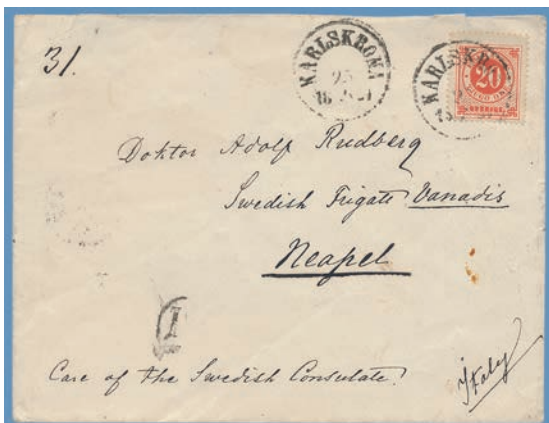 31.
KARLSKRONA
25
KARLSKR
20
Doktor Adolf Rudberg
Swedish Frigate Vanadis
Neapel
1
Care of the Swedish Consulate.
Italy